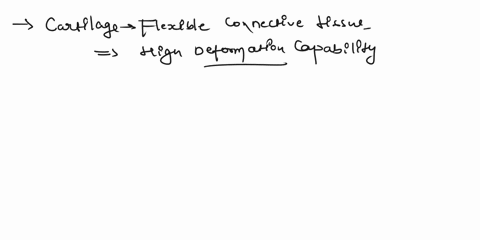 → Cartilage → Flexible Connective tissue
⇒ High Deformation Capability